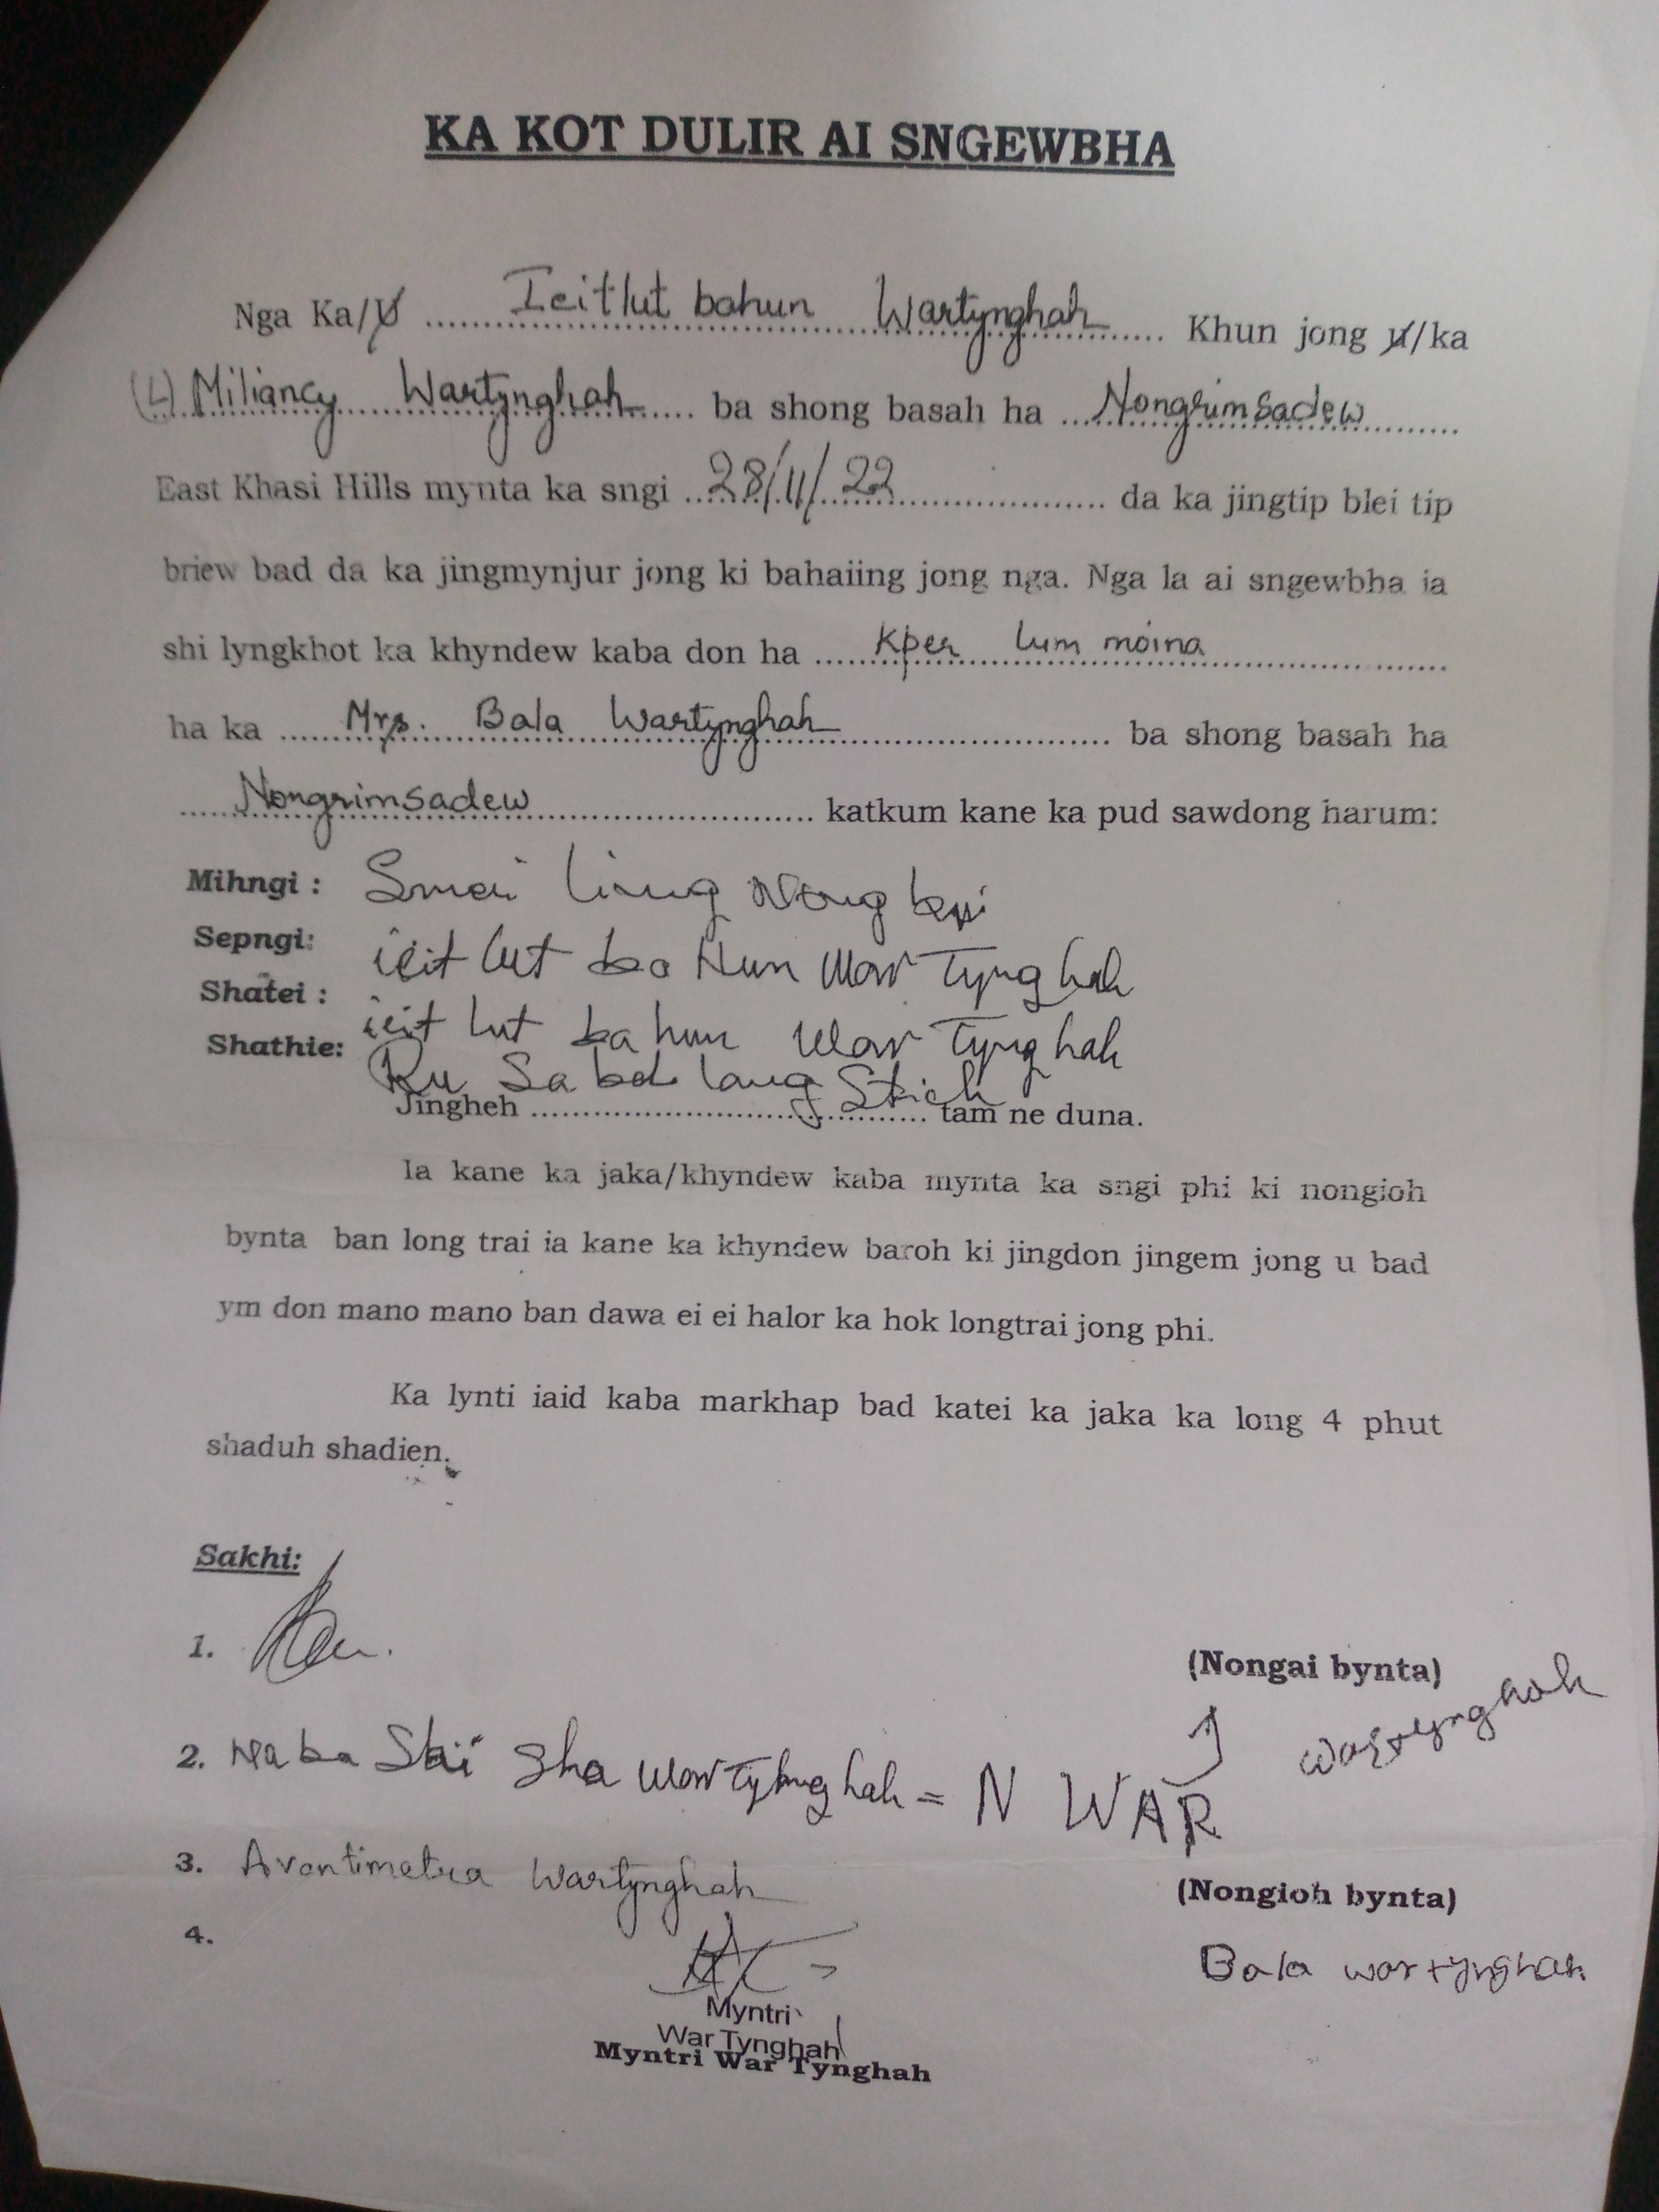 KA KOT DULIR AI SNGEWBHA
Nga Ka/U Ieitlut bahun Wartynghah Khun jong u/ka
(L) Miliancy Wartynghah ba shong basah ha Nongrimsadew
East Khasi Hills mynta ka sngi 28/11/22 da ka jingtip blei tip
briew bad da ka jingmynjur jong ki bahaiing jong nga. Nga la ai sngewbha ia
shi lyngkhot ka khyndew kaba don ha Kper lum moina
ha ka Mrs. Bala Wartynghah ba shong basah ha
Nongrimsadew katkum kane ka pud sawdong harum:
Mihngi : Nong
Sepngi: ieit lut ba Hun War Tynghah
Shatei : ieit lut ba hun War Tynghah
Shathie:
Jingheh tam ne duna.
Ia kane ka jaka/khyndew kaba mynta ka sngi phi ki nongioh
bynta ban long trai ia kane ka khyndew baroh ki jingdon jingem jong u bad
ym don mano mano ban dawa ei ei halor ka hok longtrai jong phi.
Ka lynti iaid kaba markhap bad katei ka jaka ka long 4 phut
shaduh shadien.
Sakhi:
1.
(Nongai bynta)
I wartynghah
2. Naba Skii Sha War Tynghah = N WAR
3. Avantimetra Wartynghah
(Nongioh bynta)
4.
Bala wartynghah
Myntri
War Tynghah
Myntri War Tynghah